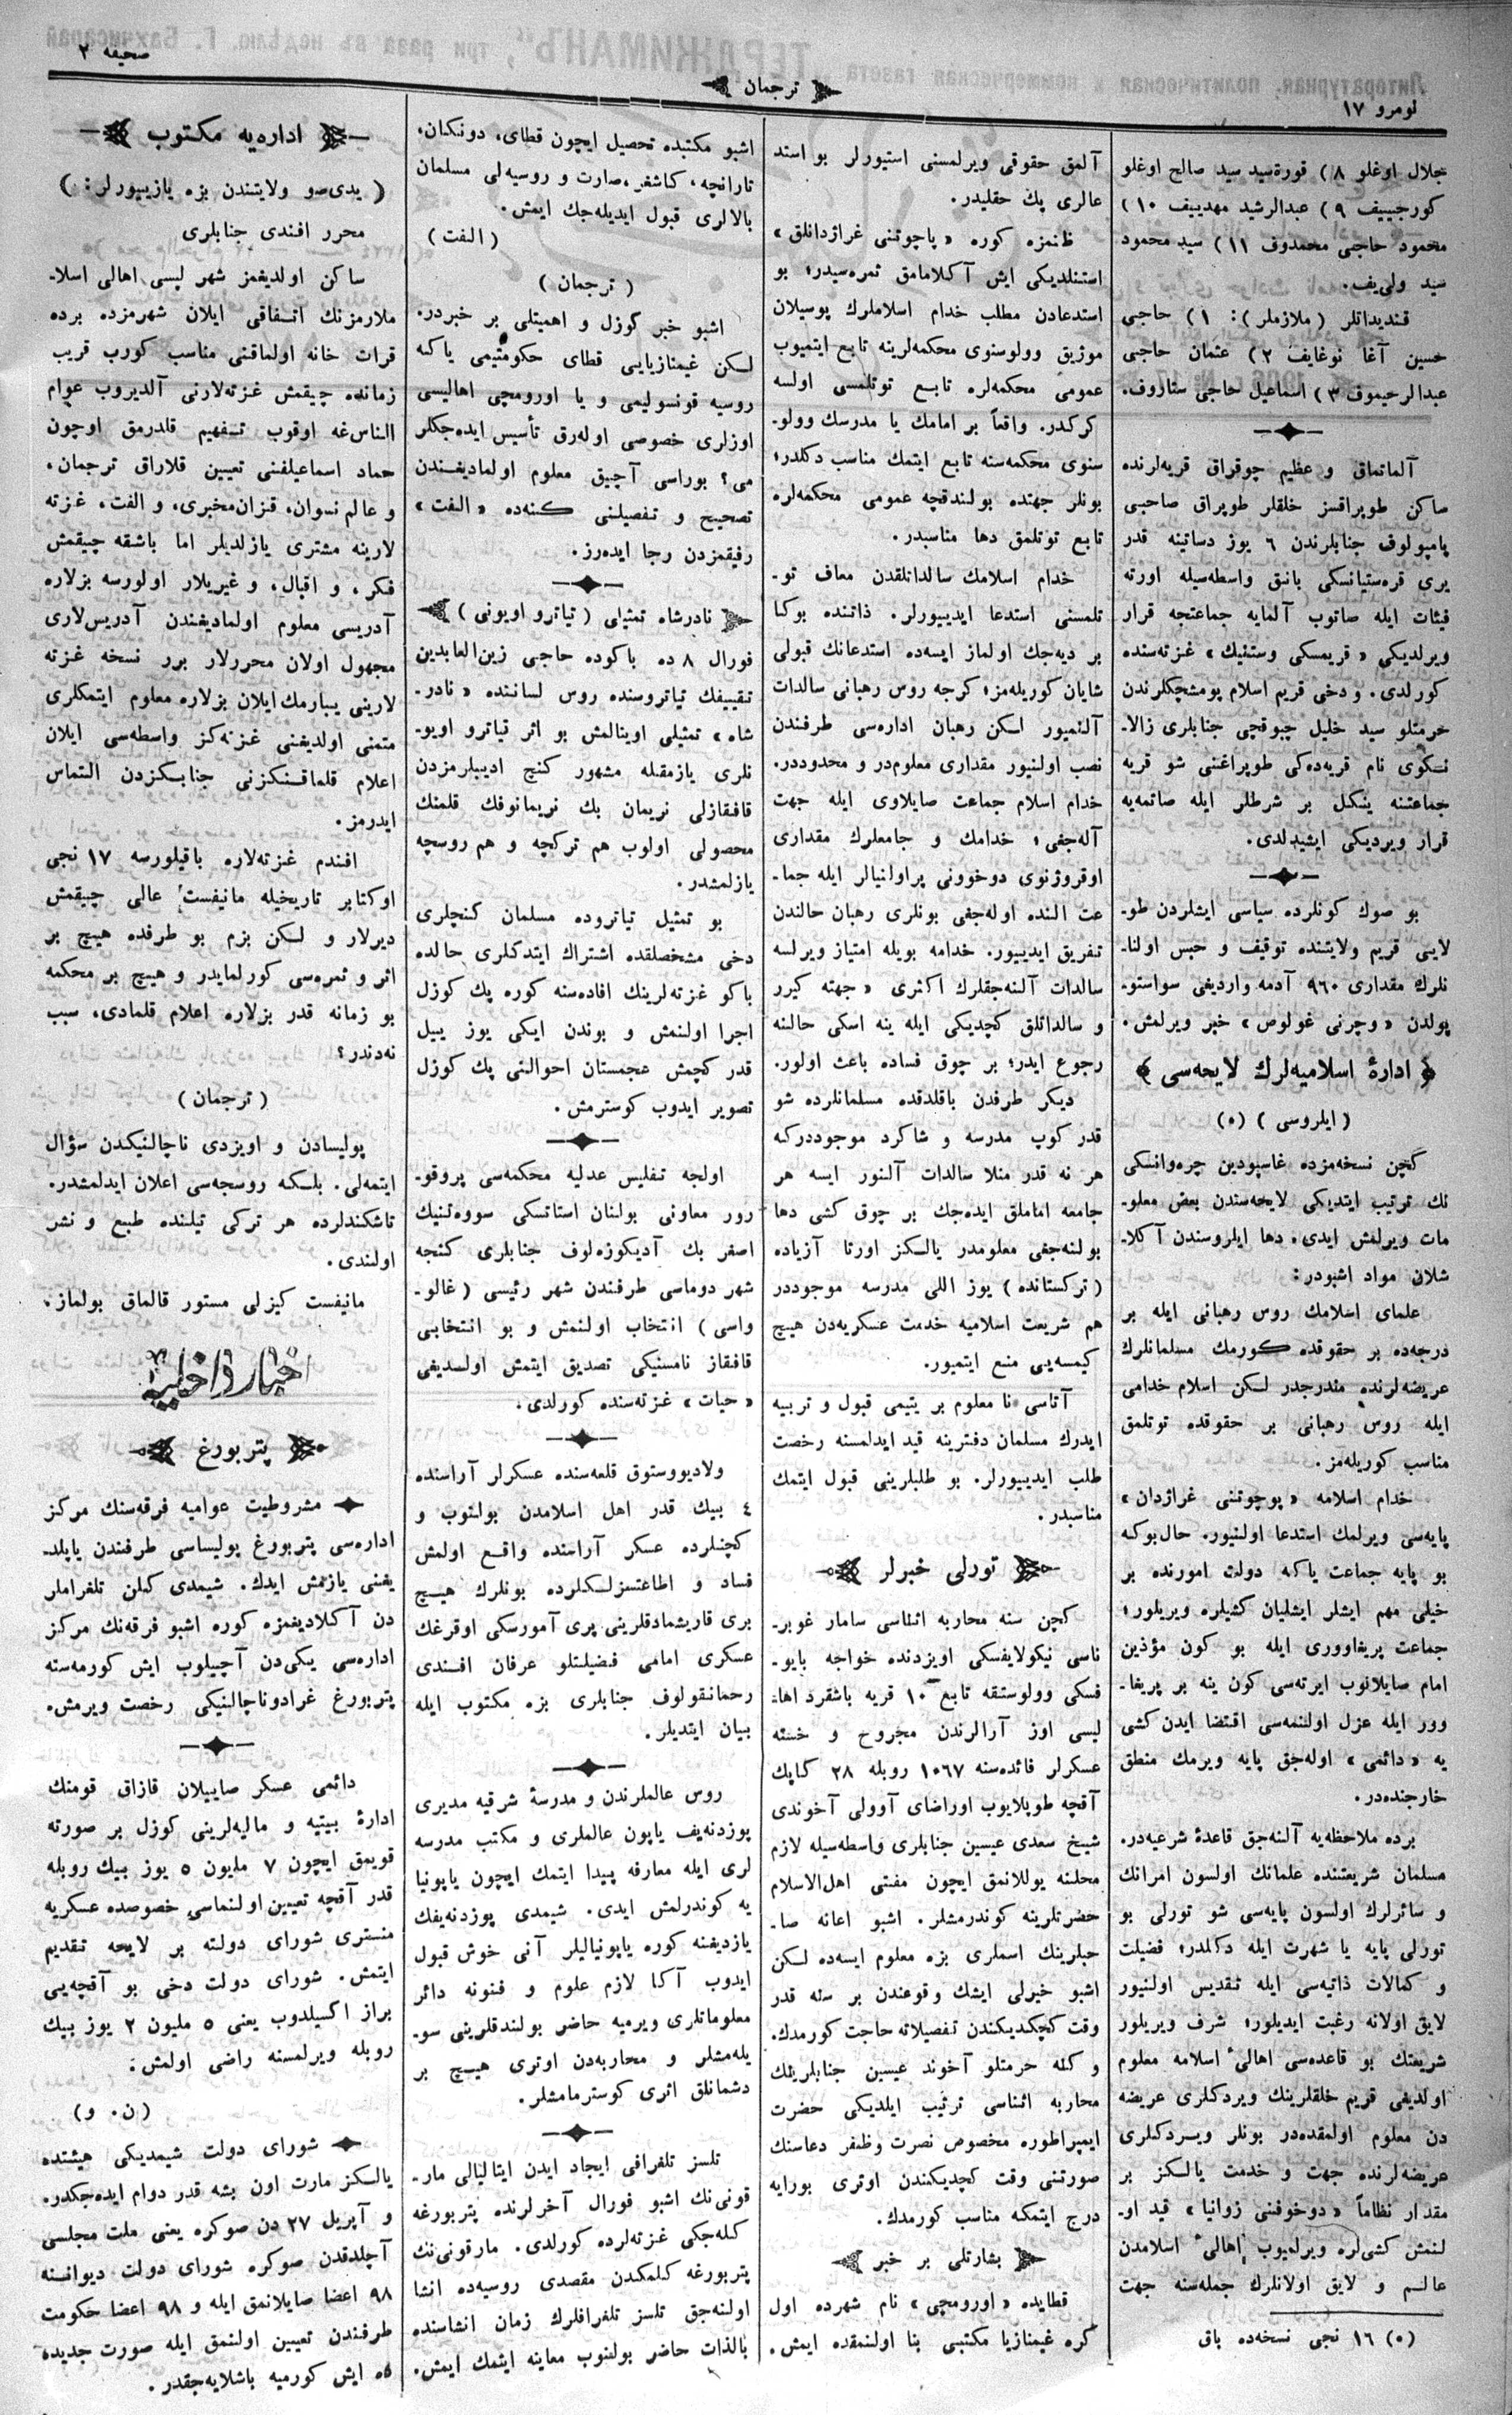 صحیفه ٢
ترجمان
نومرو ١٧
جلال اوغلو ٨) قورةسید سید صالح اوغلو
کورجییف ٩) عبدالرشید مهدییف ١٠)
محمود حاجی محمدوف ١١) سید محمود
سید ولی‌یف.
قندیداتلر (ملازملر): ١) حاجی
حسین آغا نوغایف ٢) عثمان حاجی
عبدالرحیموف ٣) اسماعیل حاجی ستاروف.
آلماتماق و عظیم چوقراق قریه‌لرنده
ساکن طوپراقسز خلقلر طوپراق صاحبی
پامپولوف جنابلرندن ٦ یوز دساتینه قدر
یری قره‌ستیانسکی بانق واسطه‌سیله اورته
فیئات ایله صاتوب آلمایه جماعتجه قرار
ویرلدیکی «قریمسکی وستنیك» غزته‌سنده
کورلدی. و دخی قریم اسلام پومشچکلرندن
حرمتلو سید خلیل چبوقچی جنابلری زالا-
نسکوی نام قریه‌ده‌کی طوپراغنی شو قریه
جماعتنه ینکل بر شرطلر ایله صاتمه‌یه
قرار ویردیکی ایشیدلدی.
بو صوك کونلرده سیاسی ایشلردن طو-
لایی قریم ولایتنده توقیف و حبس اولنا-
نلرك مقداری ٩٦٠ آدمه واردیغی سواستو-
پولدن «وچرنی غولوص» خبر ویرلمش.
﴿ ادارهٔ اسلامیه‌لرك لایحه‌سی ﴾
(ایلروسی) (٥)
کچن نسخه‌مزده غاسپودین چره‌وانسکی
نك ترتیب ایتدیکی لایحه‌سندن بعض معلو-
مات ویرلمش ایدی. دها ایلروسندن آکلا-
شلان مواد اشبودر:
علمای اسلامك روس رهبانی ایله بر
درجه‌ده بر حقوقده کورمك مسلمانلرك
عریضه‌لرنده مندرجدر لکن اسلام خدامی
ایله روس رهبانی بر حقوقده توتلمق
مناسب کوریله‌مز.
خدام اسلامه «پوچوتنی غراژدان»
پایه‌سی ویرلمك استدعا اولنیور. حال‌بوکه
بو پایه جماعت یاکه دولت امورنده بر
خیلی مهم ایشلر ایشلیان کشیلره ویریلور؛
جماعت پریغاووری ایله بو کون مؤذین
امام صایلانوب ایرته‌سی کون ینه بر پریغا-
وور ایله عزل اولنمه‌سی اقتضا ایدن کشی
یه «دائمی» اوله‌جق پایه ویرمك منطق
خارجنده‌در.
برده ملاحظه‌یه آلنه‌جق قاعدهٔ شرعیه‌در.
مسلمان شریعتنده علمانك اولسون امرانك
و سائرلرك اولسون پایه‌سی شو تورلی بو
تورلی پایه یا شهرت ایله دکلدر؛ فضیلت
و کمالات ذاتیه‌سی ایله تقدیس اولنیور
لایق اولانه رغبت ایدیلور؛ شرف ویریلور
شریعتك بو قاعده‌سی اهالیٔ اسلامه معلوم
اولدیغی قریم خلقلرینك ویردکلری عریضه
دن معلوم اولمقده‌در بونلر ویردکلری
عریضه‌لرنده جهت و خدمت یالکز بر
مقدار نظاماً «دوخوفنی زوانیا» قید او-
لنمش کشی‌لره ویرلمیوب اهالیٔ اسلامدن
عالم و لایق اولانلرك جمله‌سنه جهت
(٥) ١٦ نجی نسخه‌ده باق
آلمق حقوقی ویرلمسنی استیورلر بو استد
عالری پك حقلیدر.
ظنمزه کوره «پاچوتنی غراژدانلق»
استنلدیکی ایش آکلامامق ثمره‌سیدر؛ بو
استدعادن مطلب خدام اسلاملرك پوسیلان
موژیق وولوسنوی محکمه‌لرینه تابع ایتمیوب
عمومی محکمه‌لره تابع توتلمسی اولسه
کرکدر. واقعاً بر امامك یا مدرسك وولو-
سنوی محکمه‌سنه تابع ایتمك مناسب دکلدر؛
بونلر جهتده بولندقچه عمومی محکمه‌لره
تابع توتلمق دها مناسبدر.
خدام اسلامك سالداتلقدن معاف تو-
تلمسنی استدعا ایدییورلر. ذاتنده بوکا
بر دیه‌جك اولماز ایسه‌ده استدعانك قبولی
شایان کوریله‌مز؛ کرجه روس رهبانی سالدات
آلنمیور لکن رهبان اداره‌سی طرفندن
نصب اولنیور مقداری معلوم‌در و محدوددر.
خدام اسلام جماعت صایلاوی ایله جهت
آله‌جغی؛ خدامك و جامعلرك مقداری
اوقروژنوی دوخوونی پراولنیالر ایله جما-
عت النده اوله‌جغی بونلری رهبان حالندن
تفریق ایدییور. خدامه بویله امتیاز ویرلسه
سالدات آلنه‌جقلرك اکثری «جهته کیرر
و سالداتلق کچدیکی ایله ینه اسکی حالنه
رجوع ایدر؛ بر چوق فساده باعث اولور.
دیکر طرفدن باقلدقده مسلمانلرده شو
قدر کوپ مدرسه و شاکرد موجوددرکه
هر نه قدر منلا سالدات آلنور ایسه هر
جامعه اماملق ایده‌جك بر چوق کشی دها
بولنه‌جغی معلومدر یالکز اورتا آزیاده
(ترکستانده) یوز اللی مدرسه موجوددر
هم شریعت اسلامیه خدمت عسکریه‌دن هیچ
کیمسه‌یی منع ایتمیور.
آتاسی نا معلوم بر یتیمی قبول و تربیه
ایدرك مسلمان دفترینه قید ایدلمسنه رخصت
طلب ایدییورلر. بو طلبلرینی قبول ایتمك
مناسبدر.
تورلی خبرلر
کچن سنه محاربه اثناسی سامار غوبر-
ناسی نیکولایفسکی اویزدنده خواجه بایو-
فسکی وولوستقه تابع ١٠ قریه باشقرد اها-
لیسی اوز آرالرندن مجروح و خسته
عسکرلر فائده‌سنه ١٠٦٧ روبله ٢٨ کاپك
آقچه طوپلایوب اوراضای آوولی آخوندی
شیخ سعدی عیسین جنابلری واسطه‌سیله لازم
محلنه یوللانمق ایچون مفتی اهل‌الاسلام
حضرتلرینه کوندرمشلر. اشبو اعانه صا-
حبلرینك اسملری بزه معلوم ایسه‌ده لکن
اشبو خیرلی ایشك وقوعندن بر سنه قدر
وقت کچکدیکندن تفصیلاته حاجت کورمدك.
و کنه حرمتلو آخوند عیسین جنابلرینك
محاربه اثناسی ترتیب ایلدیکی حضرت
ایمپراطوره مخصوص نصرت وظفر دعاسنك
صورتنی وقت کچدیکندن اوتری بورایه
درج ایتمکه مناسب کورمدك.
بشارتلی بر خبر
قطایده «اورومچی» نام شهرده اول
کره غیمنازیا مکتبی بنا اولنمقده ایمش.
اشبو مکتبده تحصیل ایچون قطای، دونکان،
تارانچه، کاشغر، صارت و روسیه‌لی مسلمان
بالالری قبول ایدیله‌جك ایمش.
(الفت)
(ترجمان)
اشبو خبر کوزل و اهمیتلی بر خبردر.
لکن غیمنازیایی قطای حکومتیمی یاکه
روسیه قونسولیمی و یا اورومچی اهالیسی
اوزلری خصوصی اوله‌رق تأسیس ایده‌جکلر
می؟ بوراسی آچیق معلوم اولمادیغندن
تصحیح و تفصیلنی کنه‌ده «الفت»
رفیقمزدن رجا ایده‌رز.
نادرشاه تمثیلی (تیاترو اویونی)
فورال ٨ ده باکوده حاجی زین‌العابدین
تقییفك تیاتروسنده روس لساننده «نادر-
شاه» تمثیلی اوینالمش بو اثر تیاترو اویو-
نلری یازمقله مشهور کنج ادیبلرمزدن
قافقازلی نریمان بك نریمانوفك قلمنك
محصولی اولوب هم ترکچه و هم روسچه
یازلمشدر.
بو تمثیل تیاتروده مسلمان کنچلری
دخی مشخصلقده اشتراك ایتدکلری حالده
باکو غزته‌لرینك افاده‌سنه کوره پك کوزل
اجرا اولنمش و بوندن ایکی یوز ییل
قدر کچمش عجمستان احوالنی پك کوزل
تصویر ایدوب کوسترمش.
اولجه تفلیس عدلیه محکمه‌سی پروقو-
رور معاونی بولنان استاتسکی سووه‌تنیك
اصغر بك آدیکوزه‌لوف جنابلری کنجه
شهر دوماسی طرفندن شهر رئیسی (غالو-
واسی) انتخاب اولنمش و بو انتخابی
قافقاز نامسنیکی تصدیق ایتمش اولدیغی
«حیات» غزته‌سنده کورلدی.
ولادیووستوق قلعه‌سنده عسکرلر آراسنده
٤ بیك قدر اهل اسلامدن بولنوب و
کچنلرده عسکر آراسنده واقع اولمش
فساد و اطاعتسزلکلرده بونلرك هیچ
بری قاریشمادقلرینی پری آمورسکی اوقرغك
عسکری امامی فضیلتلو عرفان افندی
رحمانقولوف جنابلری بزه مکتوب ایله
بیان ایتدیلر.
روس عالملرندن و مدرسهٔ شرقیه مدیری
پوزدنه‌یف یاپون عالملری و مکتب مدرسه
لری ایله معارفه پیدا ایتمك ایچون یاپونیا
یه کوندرلمش ایدی. شیمدی پوزدنه‌یفك
یازدیغنه کوره یاپونیالیلر آنی خوش قبول
ایدوب آکا لازم علوم و فنونه دائر
معلوماتلری ویرمیه حاضر بولندقلرینی سو-
یله‌مشلر و محاربه‌دن اوتری هیچ بر
دشمانلق اثری کوسترمامشلر.
تلسز تلغرافی ایجاد ایدن ایتالیالی مار-
قونی‌نك اشبو فورال آخرلرنده پتربورغه
کله‌جکی غزته‌لرده کورلدی. مارقونی‌نك
پتربورغه کلمکدن مقصدی روسیه‌ده انشا
اولنه‌جق تلسز تلغرافلرك زمان انشاسنده
بالذات حاضر بولنوب معاینه ایتمك ایمش.
اداره‌یه مکتوب
(یدی‌صو ولایتندن بزه یازییورلر:)
محرر افندی جنابلری
ساکن اولدیغمز شهر لپسی اهالی اسلا-
ملارمزنك اتفاقی ایلان شهرمزده برده
قرات خانه اولماقنی مناسب کورب قریب
زمانده چیقمش غزته‌لارنی آلدیروب عوام
الناس‌غه اوقوب تفهیم قلدرمق اوچون
حماد اسماعیلفنی تعیین قلاراق ترجمان،
و عالم نسوان، قزان‌مخبری، و الفت، غزته
لارینه مشتری یازلدیلر اما باشقه چیقمش
فکر، و اقبال، و غیریلار اولورسه بزلاره
آدریسی معلوم اولمادیغندن آدریس‌لاری
مجهول اولان محررلار برر نسخه غزته
لارینی یبارمك‌ایلان بزلاره معلوم ایتمکلری
متمنی اولدیغنی غزته‌کز واسطه‌سی ایلان
اعلام قلماقنکزنی جنابکزدن التماس
ایدرمز.
افندم غزته‌لاره باقیلورسه ١٧ نجی
اوکتابر تاریخیله مانیفست عالی چیقمش
دیرلار و لکن بزم بو طرفده هیچ بر
اثر و ثمره‌سی کورلمایدر و هیچ بر محکمه
بو زمانه قدر بزلاره اعلام قلمادی، سبب
نه‌دندر؟
(ترجمان)
پولیسادن و اویزدی ناچالنیکدن سؤال
ایتمه‌لی. بلکه روسجه‌سی اعلان ایدلمشدر.
تاشکندلرده هر ترکی تیلنده طبع و نشر
اولندی.
مانیفست کیزلی مستور قالماق بولماز.
اخبار داخلیه
پتربورغ
مشروطیت عوامیه فرقه‌سنك مرکز
اداره‌سی پتربورغ پولیساسی طرفندن یاپلد-
یغنی یازمش ایدك. شیمدی کلن تلغراملر
دن آکلادیغمزه کوره اشبو فرقه‌نك مرکز
اداره‌سی یکی‌دن آچیلوب ایش کورمه‌سنه
پتربورغ غرادوناچالنیکی رخصت ویرمش.
دائمی عسکر صاییلان قازاق قومنك
ادارهٔ بیتیه و مالیه‌لرینی کوزل بر صورته
قویمق ایچون ٧ ملیون ٥ یوز بیك روبله
قدر آقچه تعیین اولنماسی خصوصده عسکریه
منستری شورای دولته بر لایحه تقدیم
ایتمش. شورای دولت دخی بو آقچه‌یی
براز اکسیلدوب یعنی ٥ ملیون ٢ یوز بیك
روبله ویرلمسنه راضی اولمش.
(ن. و)
شورای دولت شیمدیکی هیئتده
یالکز مارت اون بشه قدر دوام ایده‌جکدر.
و آپریل ٢٧ دن صوکره یعنی ملت مجلسی
آچلدقدن صوکره شورای دولت دیوانسنه
٩٨ اعضا صایلانمق ایله و ٩٨ اعضا حکومت
طرفندن تعیین اولنمق ایله صورت جدیده
ده ایش کورمیه باشلایه‌جقدر.